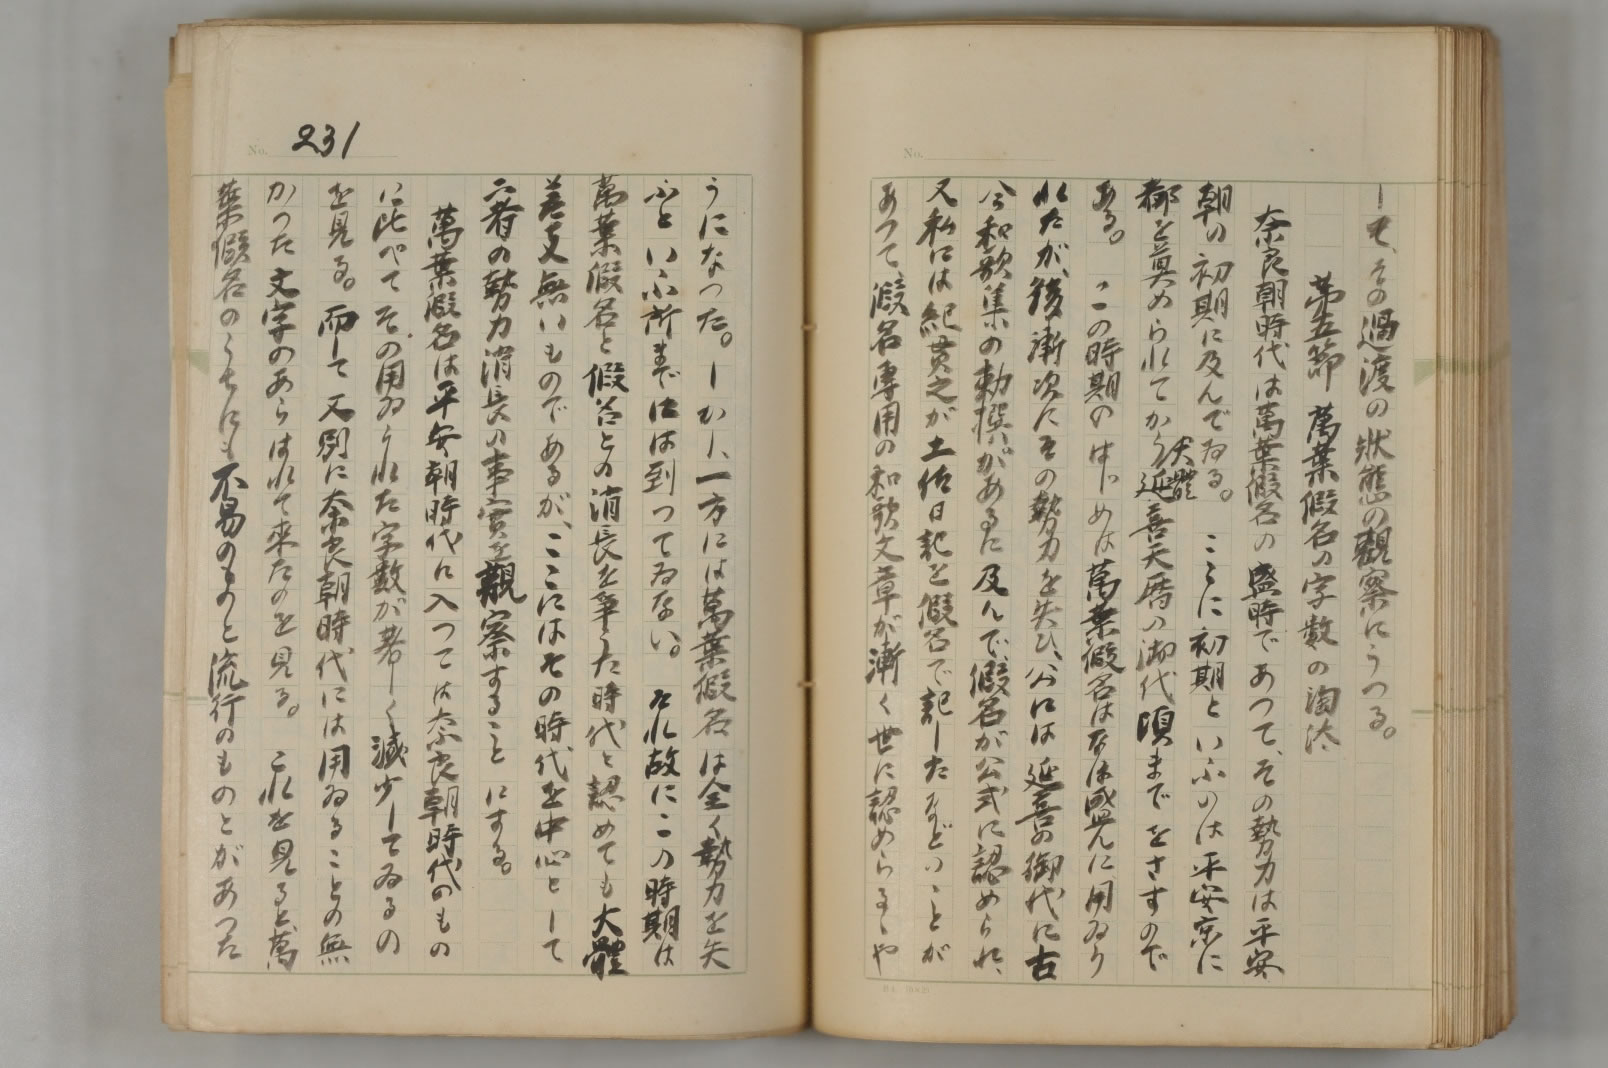 しも、その過渡の狀態の觀察にうつる。
第五節 萬葉假名の字數の淘汰
奈良朝時代は萬葉假名の盛時であつて、その勢力は平安
朝の初期に及んでゐる。ここに初期といふのは平安京に
都を奠められてから大體延喜天曆の御代頃までをさすので
ある。この時期のはじめは萬葉假名はなほ盛んに用ゐら
れたが、後漸次にその勢力を失ひ、公には延喜の御代に古
今和歌集の勅撰があるに及んで、假名が公式に認められ、
又私には紀貫之が土佐日記を假名で記したなどいことが
あつて、假名專用の和歌文章が漸く世に認めらるゝや
No.
No. 231
うになつた。しかし、一方には萬葉假名は全く勢力を失
ふといふ所までには到つてゐない。それ故にこの時期は
萬葉假名と假名との消長を爭うた時代と認めても大體
差支無いものであるが、ここにはその時代を中心として
二者の勢力消長の事實を觀察することにする。
萬葉假名は平安朝時代に入つては奈良朝時代のもの
に比べてその用ゐられた字數が著しく減少してゐるの
を見る。而して又別に奈良朝時代には用ゐることの無
かつた文字のあらはれて來たのを見る。これを見ると、萬
葉假名のうちにも不易のものと流行のものとがあつた